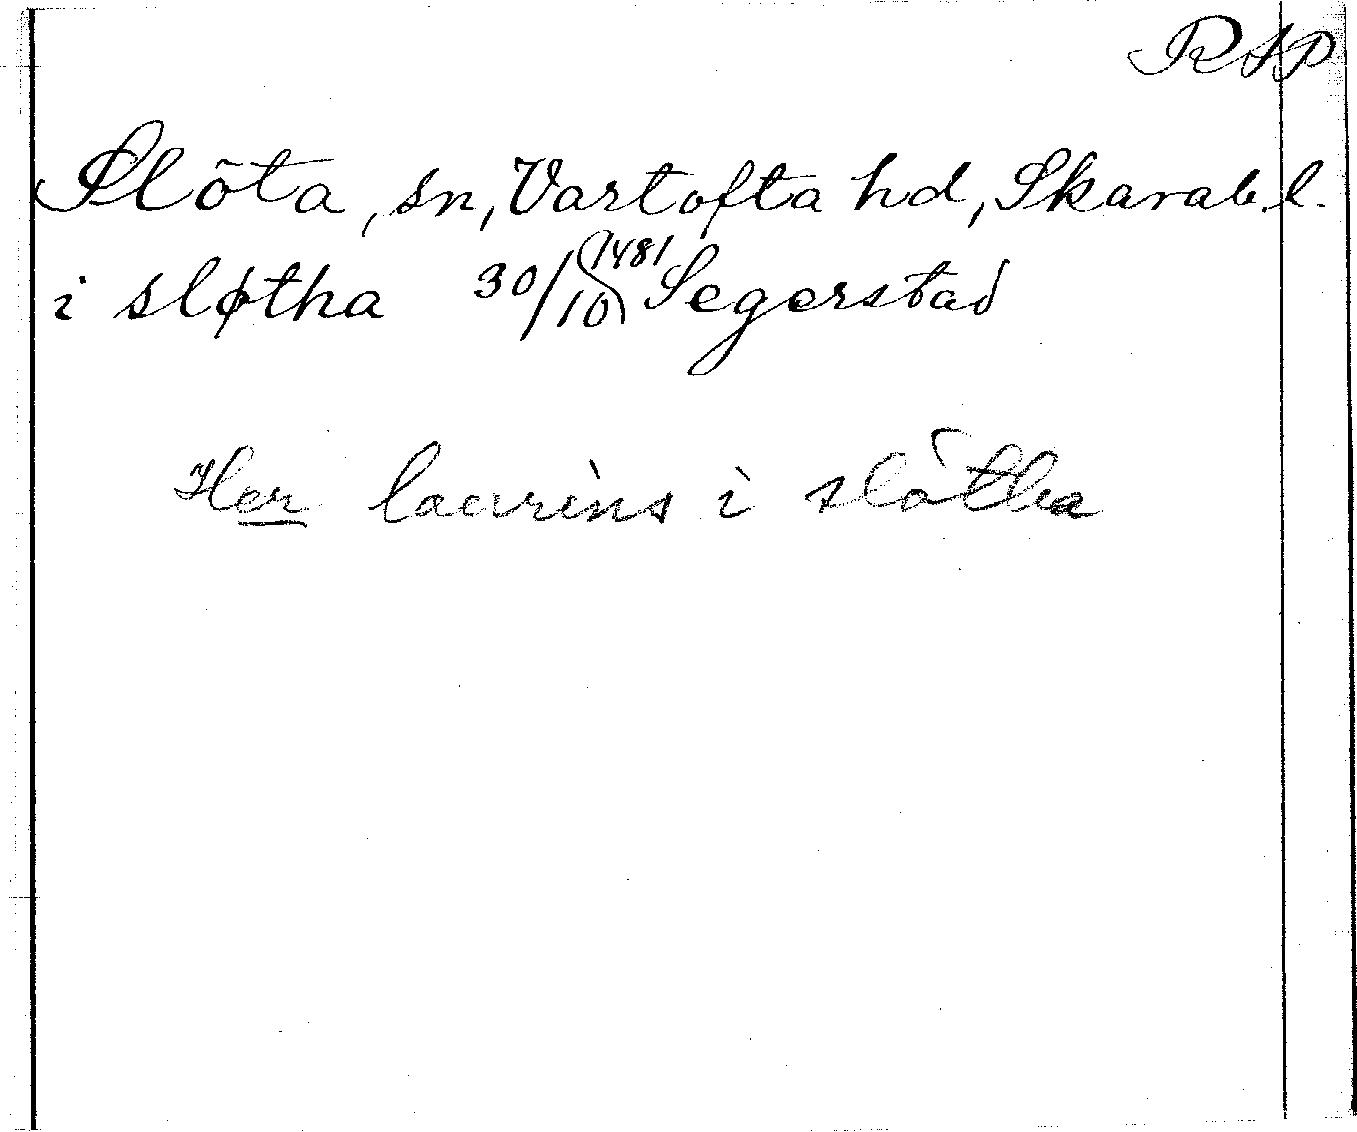 RAP
Slöta, sn, Vartofta hd, Skarab. l.
i sløtha 30/10 1481 Segerstad
Her laurens i sløtha